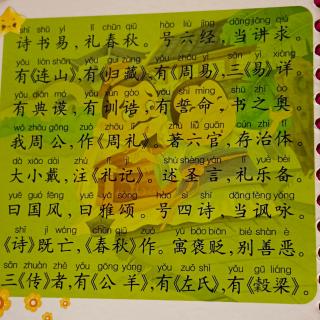 shī shū yì lǐ chūn qiū hào liù jīng dāng jiǎng qiú
诗书易，礼春秋。号六经，当讲求。
yǒu lián shān yǒu guī cáng yǒu zhōu yì sān yì xiáng
有《连山》，有《归藏》，有《周易》，三《易》详。
yǒu diǎn mó yǒu xùn gào yǒu shì mìng shū zhī ào
有典谟，有训诰，有誓命，书之奥。
wǒ zhōu gōng zuò zhōu lǐ zhù liù guān cún zhì tǐ
我周公，作《周礼》。著六官，存治体。
dà xiǎo dài zhù lǐ jì shù shèng yán lǐ yuè bèi
大小戴，注《礼记》。述圣言，礼乐备。
yuē guó fēng yuē yǎ sòng hào sì shī dāng fěng yǒng
曰国风，曰雅颂。号四诗，当讽咏。
shī jì wáng chūn qiū zuò yù bāo biǎn bié shàn è
《诗》既亡，《春秋》作。寓褒贬，别善恶。
sān zhuàn zhě yǒu gōng yáng yǒu zuǒ shì yǒu gǔ liáng
三《传》者，有《公羊》，有《左氏》，有《穀梁》。